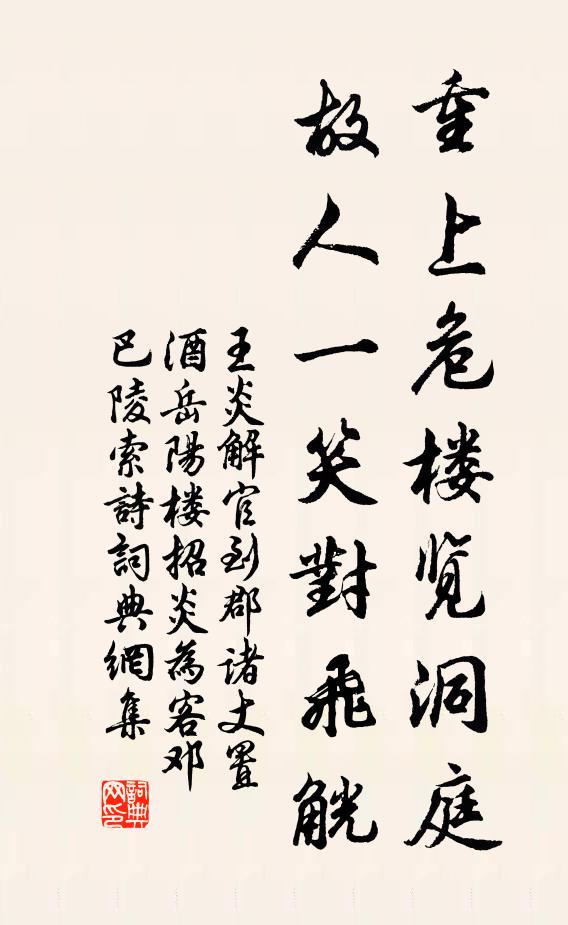 重上危楼览洞庭
故人一笑對飛觥
王炎解官到郡诸丈置
酒岳陽楼招炎為客邓
巴陵索詩詞典網集
詞典
网印